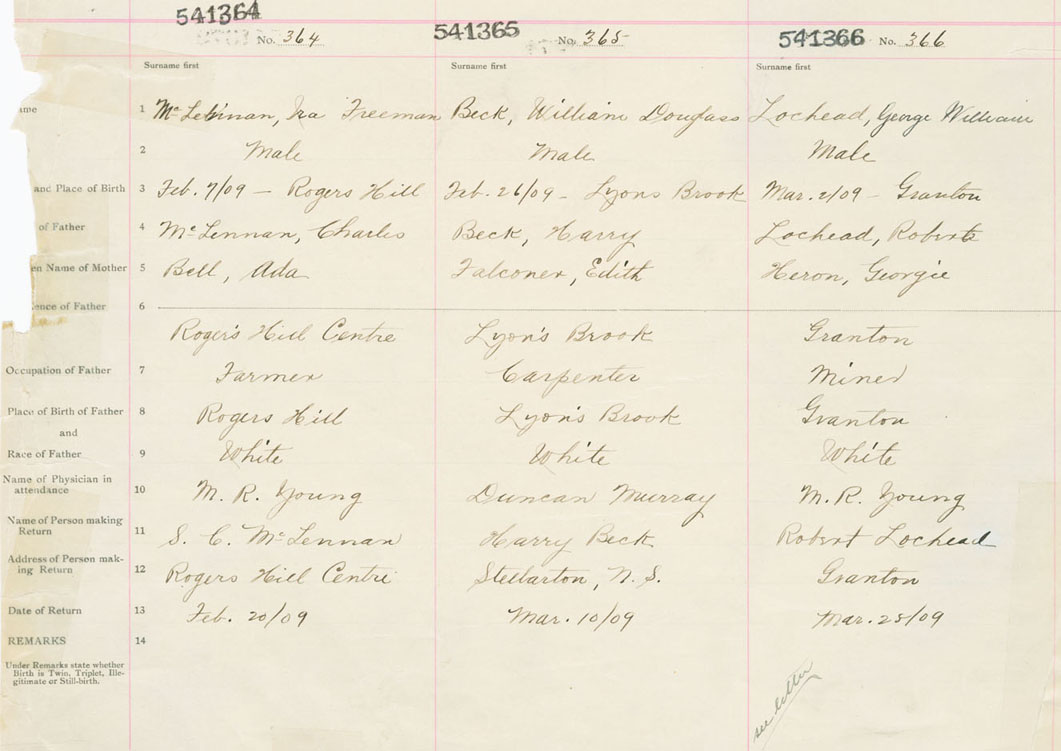 541364 No. 364 541365 No. 365 541366 No. 366
Surname first Surname first Surname first
ame 1 McLennan, Ira Freeman Beck, William Douglass Lochead, George William
2 Male Male Male
and Place of Birth 3 Feb. 7/09 – Rogers Hill Feb. 26/09 – Lyons Brook Mar. 2/09 – Granton
of Father 4 McLennan, Charles Beck, Harry Lochead, Robert
en Name of Mother 5 Bell, Ada Falconer, Edith Heron, Georgie
ence of Father 6
Roger's Hill Centre Lyon's Brook Granton
Occupation of Father 7 Farmer Carpenter Miner
Place of Birth of Father 8 Rogers Hill Lyon's Brook Granton
and
Race of Father 9 White White White
Name of Physician in
attendance 10 M. R. Young Duncan Murray M. R. Young
Name of Person making
Return 11 S. C. McLennan Harry Beck Robert Lochead
Address of Person mak-
ing Return 12 Rogers Hill Centre Stellarton, N. S. Granton
Date of Return 13 Feb. 20/09 Mar. 10/09 Mar. 25/09
REMARKS 14
Under Remarks state whether
Birth is Twin, Triplet, Ille-
gitimate or Still-birth.
see letter